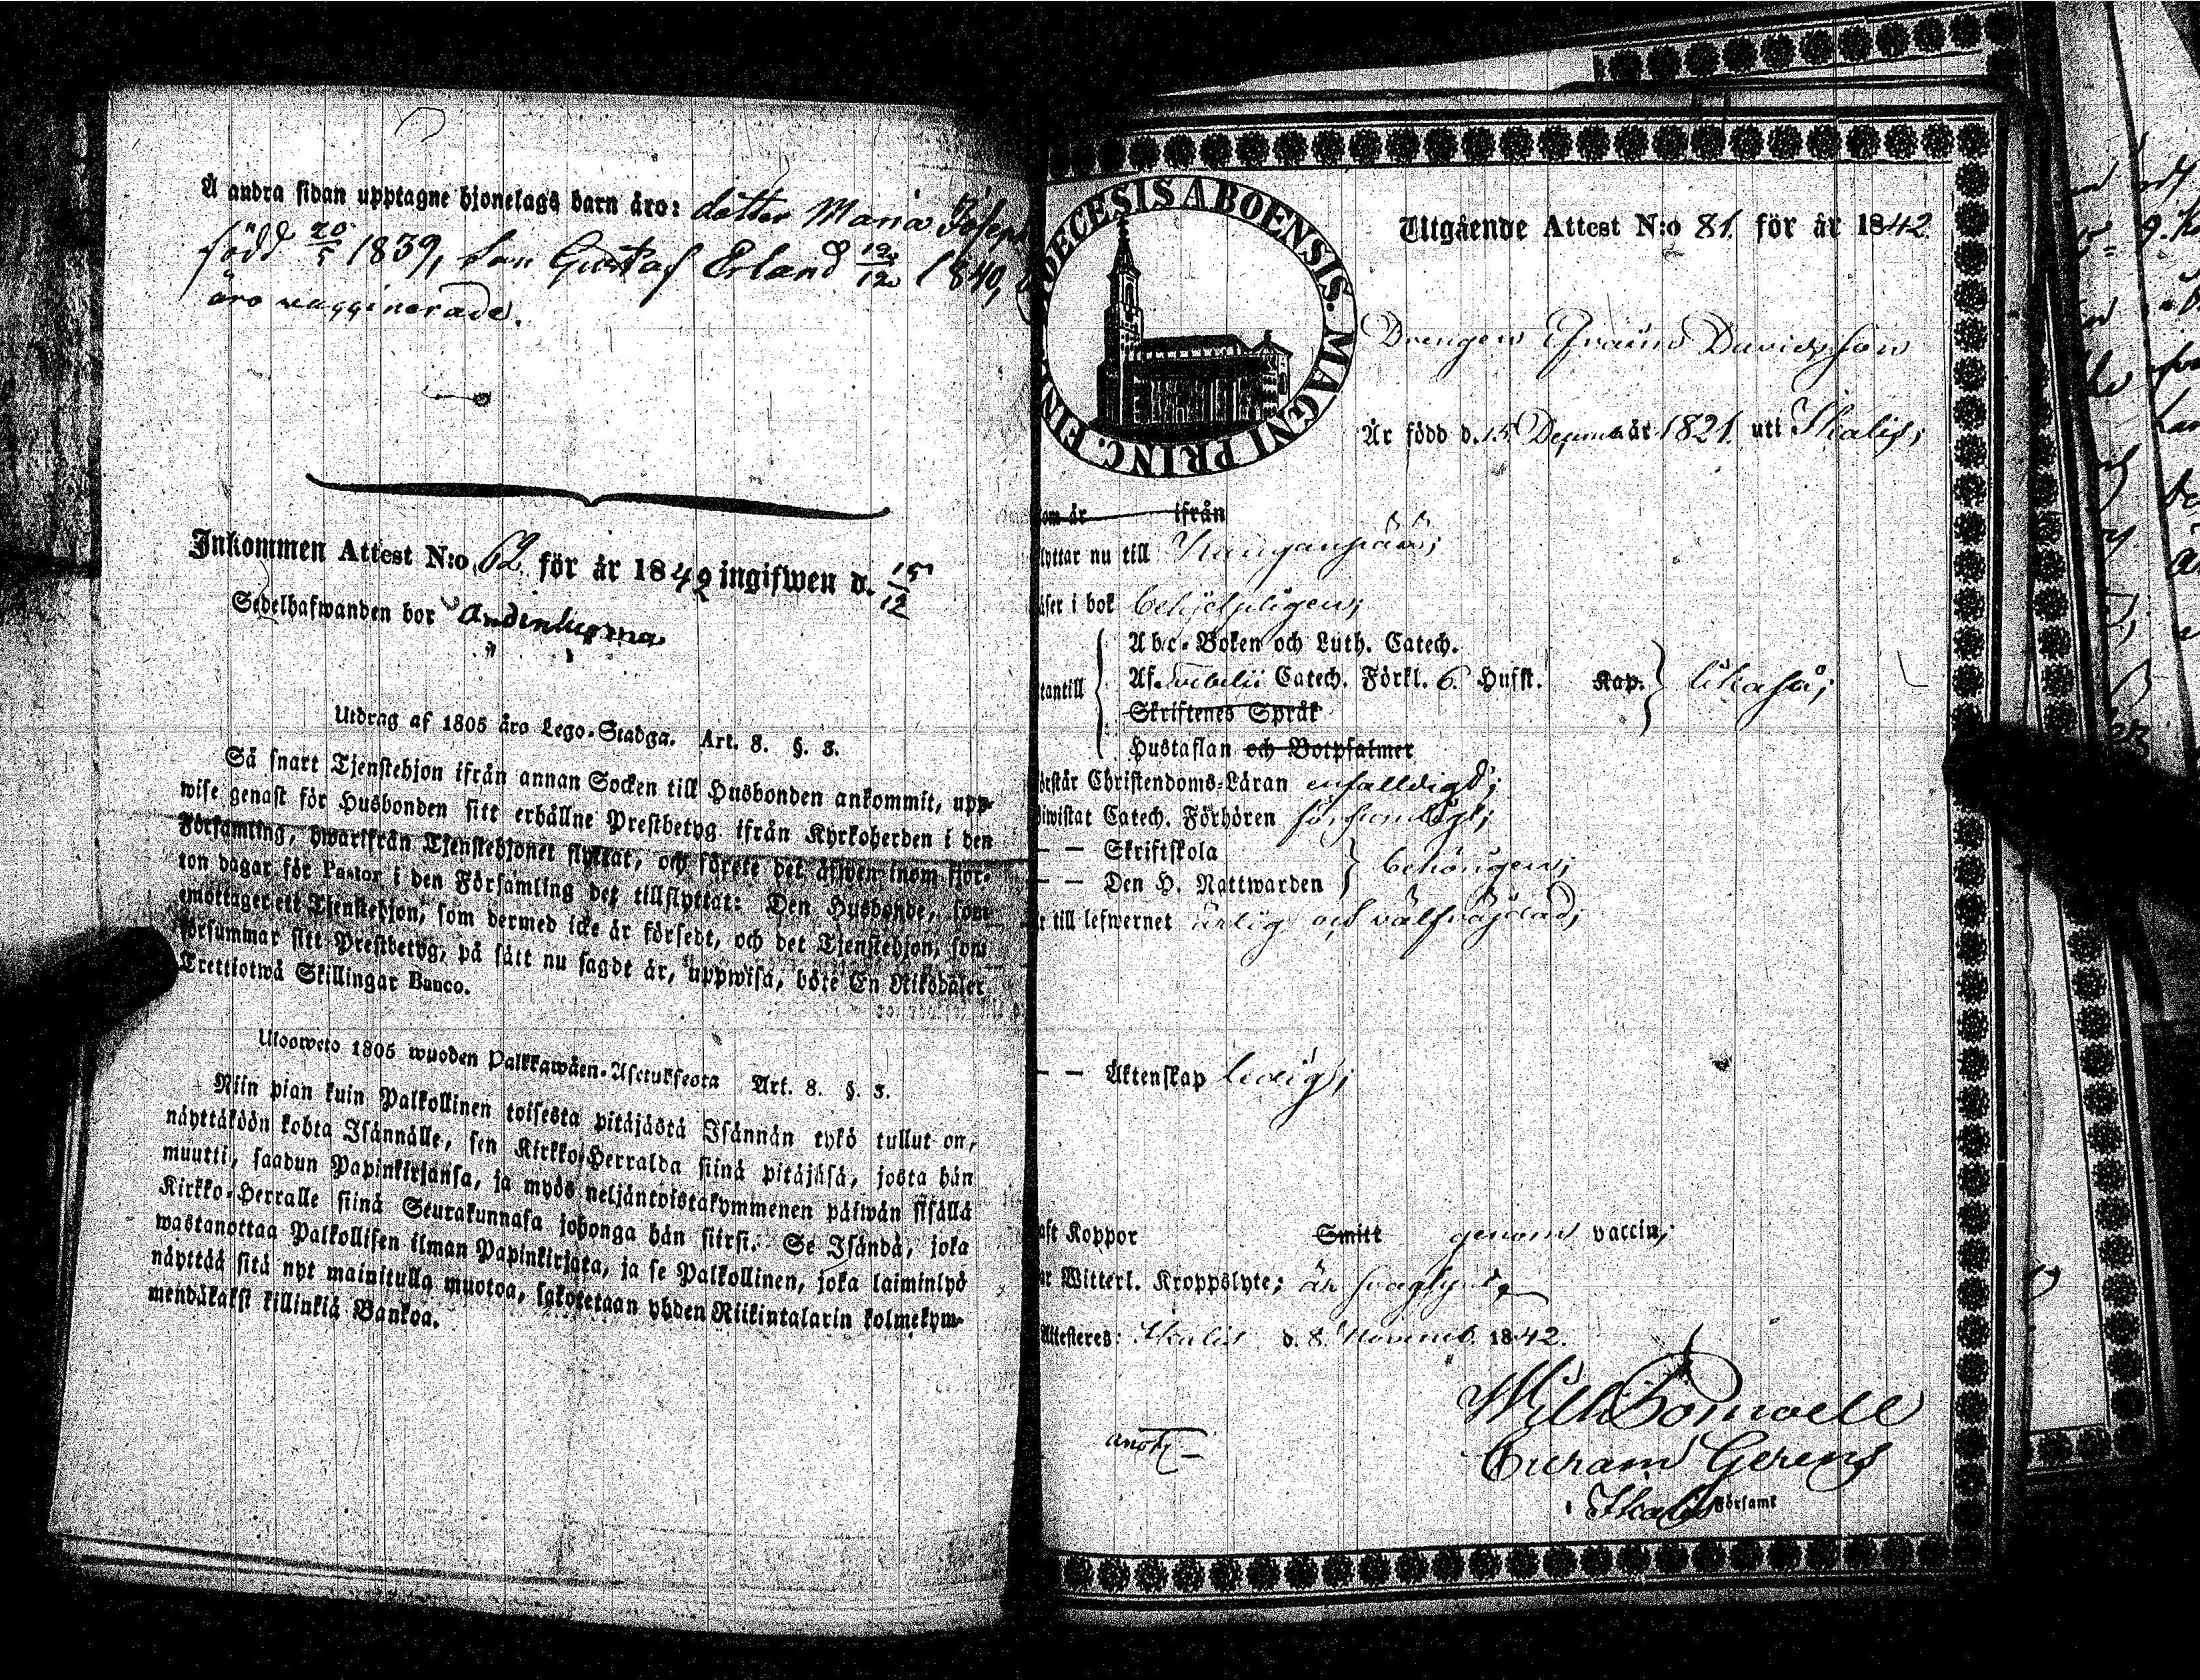 Å andra sidan upptagne hjonelags barn äro: dotter Maria Joseph
född 20/5 1839, son Gustaf Erland 12/12 1840,
äro vaccinerade.
Inkommen Attest N:o 62 för år 1842 ingifwen d. 15/12
Sedelhafwanden bor
Utdrag af 1805 års Lego-Stadga. Art. 8. §. 3.
Så snart Tjenstehjon ifrån annan Socken till Husbonden ankommit, upp-
wise genast för Husbonden sitt erhållne Prestbetyg ifrån Kyrkoherden i den
Församling, hwarifrån Tjenstehjonet flyttat, och förete det äfwen inom fjor-
ton dagar för Pastor i den Församling det tillflyttat: Den Husbonde, som
emottager ett Tjenstehjon, som dermed icke är försedt, och det Tjenstehjon, som
försummar sitt Prestbetyg, på sätt nu sagdt är, uppwisa, böte En Riksdaler
Trettiotwå Skillingar Banco.
Ulosweto 1805 wuoden Palkkawäen-Asetuksesta Art. 8. §. 3.
Niin pian kuin Palkollinen toisesta pitäjästä Isännän tykö tullut on,
näyttäköön kohta Isännälle, sen Kirkko-Herralda siinä pitäjäsä, josta hän
muutti, saadun Papinkirjansa, ja myös neljäntoistakymmenen päiwän sisällä
Kirkko-Herralle siinä Seurakunnasa johonga hän siirsi. Se Isändä, joka
wastanottaa Palkollisen ilman Papinkirjata, ja se Palkollinen, joka laiminlyö
näyttää sitä nyt mainitulla muotoa, sakotetaan yhden Riikintalarin kolmekym-
mendäkaksi killinkiä Bankoa.
DIOECESIS ABOENSIS. MAGNI PRINC. FINL
Utgående Attest N:o 81. för år 1842
Drengen Efraim Davidsson
Är född d. 15 Decemb. år 1821. uti Ikalis;
om är ifrån
lyttar nu till Kanganpää;
äser i bok behjelpligen;
Abc-Boken och Luth. Catech.
tantill Af Svebelii Catech. Förkl. 6. Hufst. Kap. likaså;
Skriftenes Språk
Hustaflan och Botpsalmer
örstår Christendoms-Läran enfalldigt;
iwistat Catech. Förhören försumligt;
— — Skriftskola
— — Den H. Nattwarden behörigen;
r till lefwernet ärlig och välfrejdad;
— — Äktenskap ledig;
aft Koppor Smitt genom vaccin;
ar Witterl. Kroppslyte; är svagsynt
Attesteres: Ikalis d. 8. Novemb. 1842.
Curam Gerens
Ikalis Församl